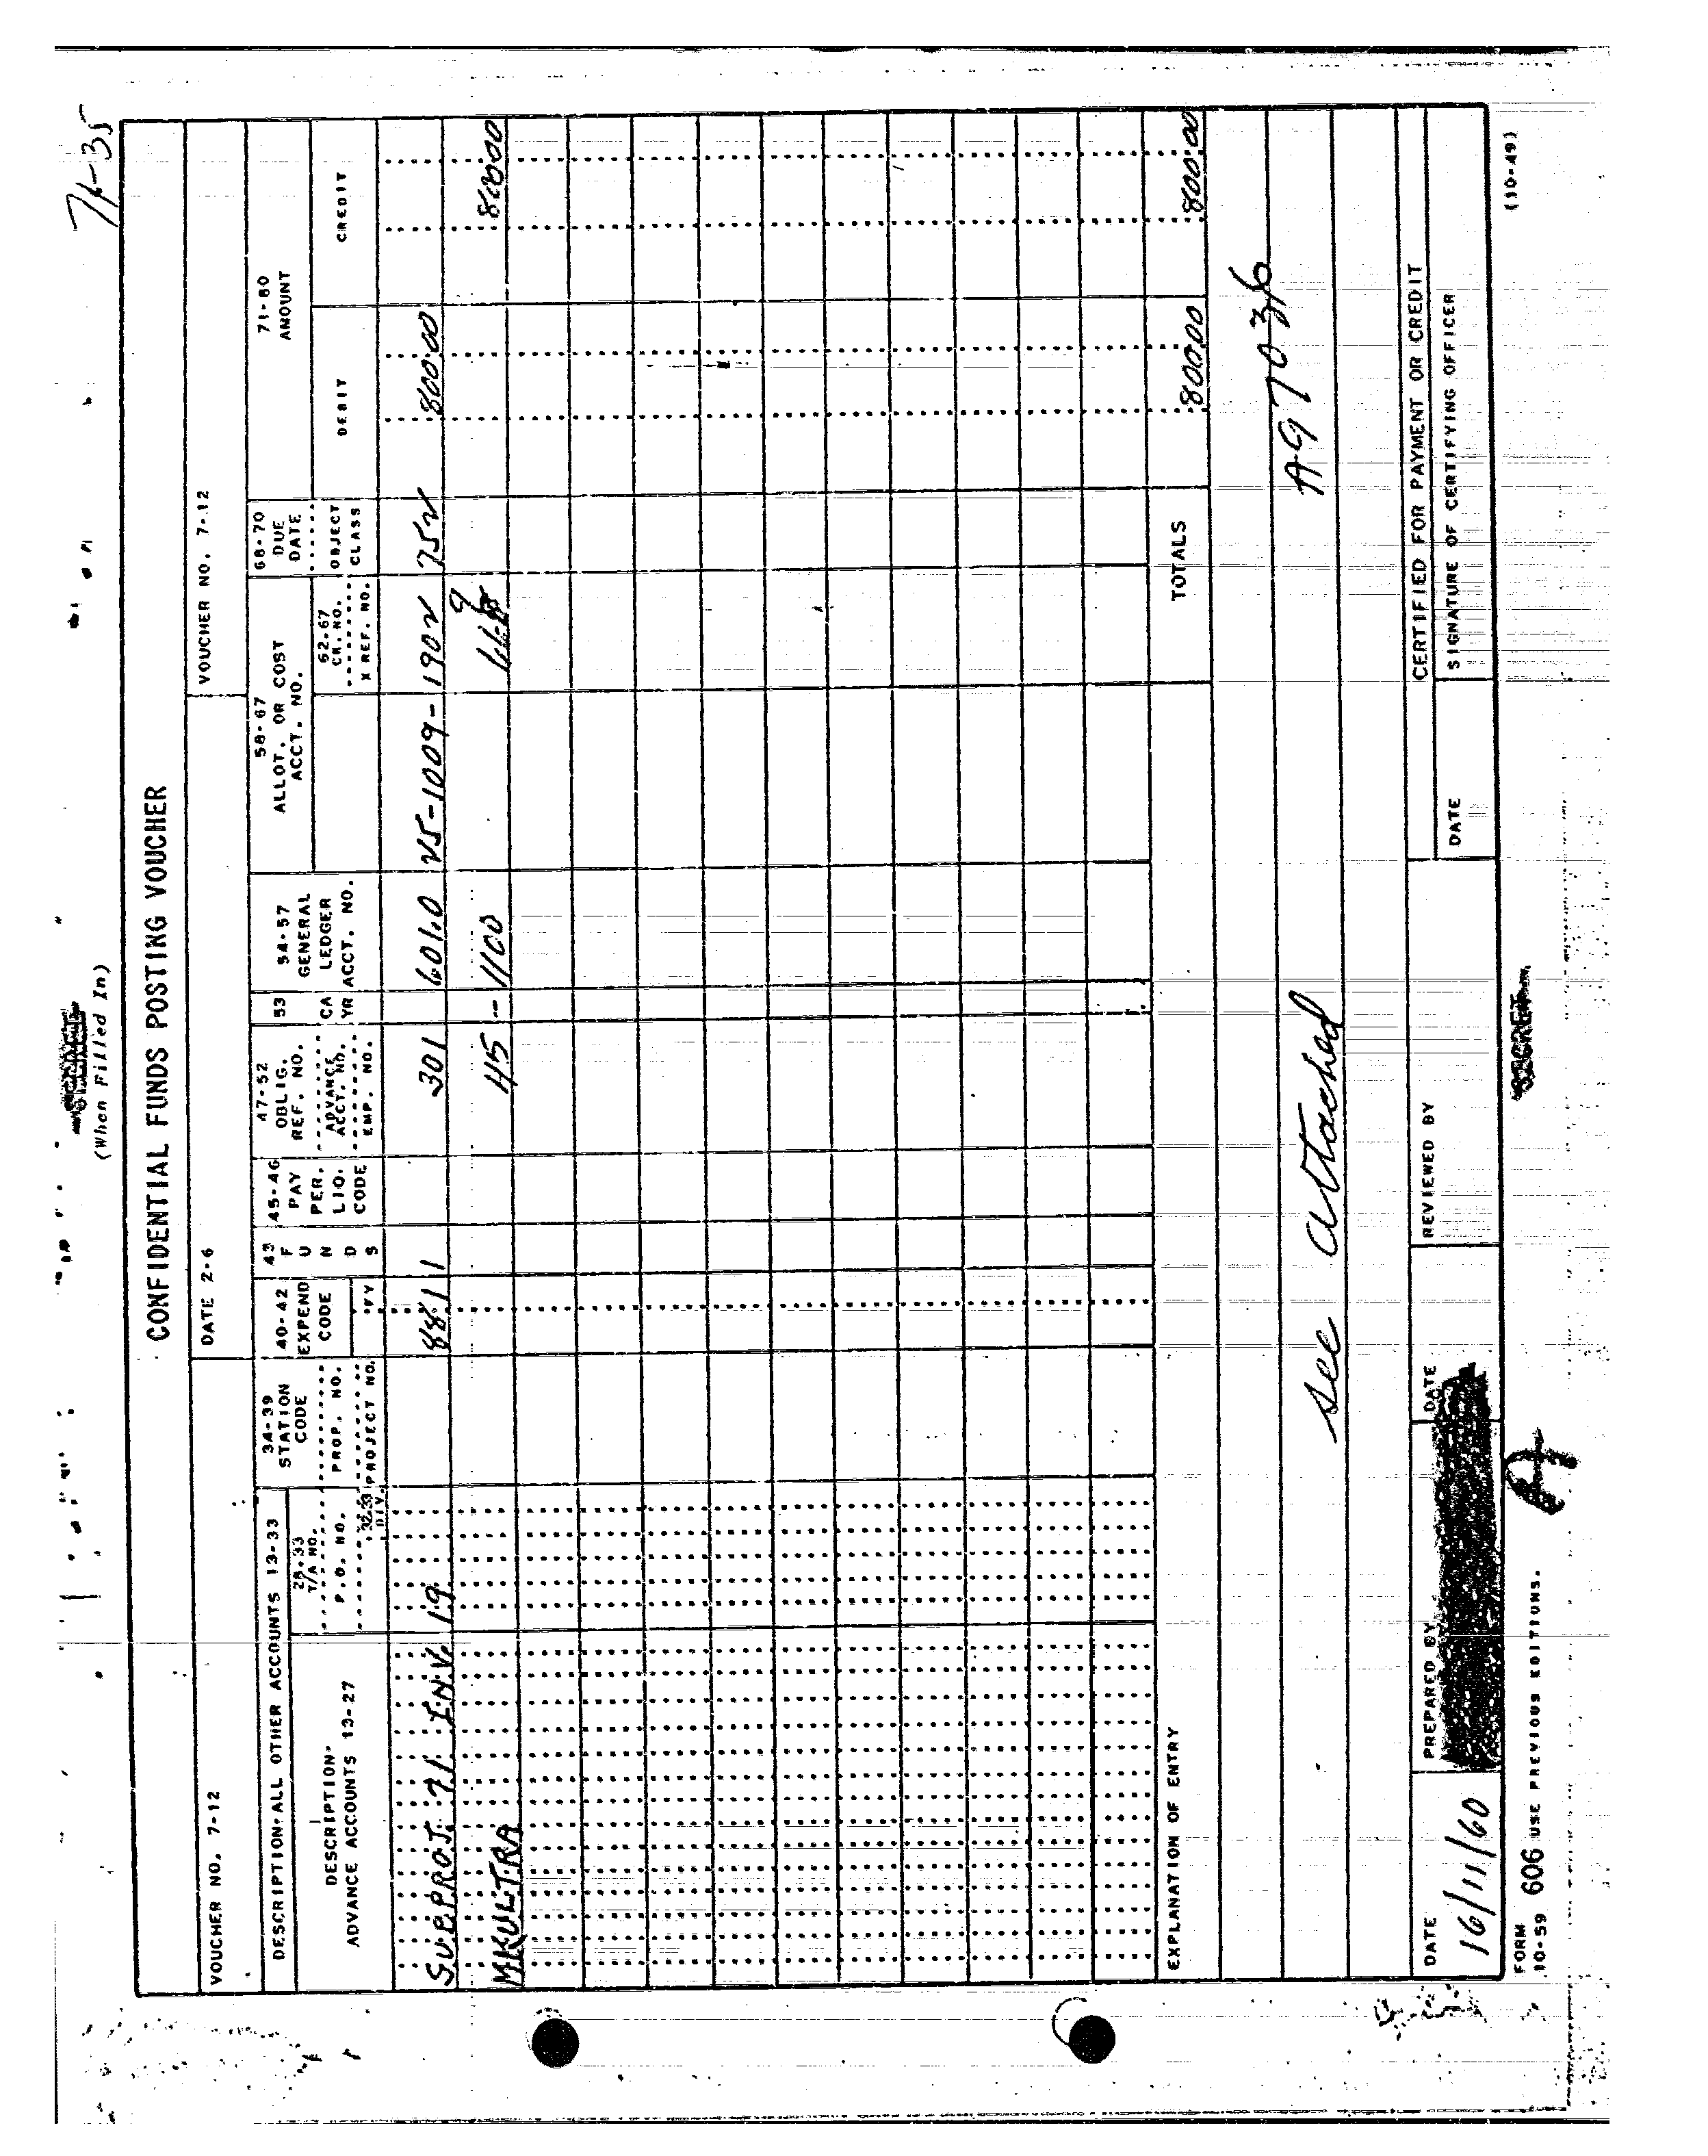 71-35
(When Filled In)
CONFIDENTIAL FUNDS POSTING VOUCHER
VOUCHER NO. 7-12 DATE 2-6 VOUCHER NO. 7-12
DESCRIPTION-ALL OTHER ACCOUNTS 13-33
DESCRIPTION-
ADVANCE ACCOUNTS 13-27
28-33
T/A NO.
P.O. NO.
32-33
DIV.
34-39
STATION
CODE
PROP. NO.
PROJECT NO.
40-42
EXPEND
CODE
FY
43
F
U
N
D
S
45-46
PAY
PER.
LIQ.
CODE
47-52
OBLIG.
REF. NO.
ADVANCE
ACCT. NO.
EMP. NO.
53
CA
YR
54-57
GENERAL
LEDGER
ACCT. NO.
58-67
ALLOT. OR COST
ACCT. NO.
62-67
CK. NO.
X REF. NO.
68-70
DUE
DATE
OBJECT
CLASS
71-80
AMOUNT
DEBIT CREDIT
SUBPROJ. 71 INV. 19 881 1 301 601.0 25-1009-1902 752 800.00
MKULTRA 115 - 1100 800.00
EXPLANATION OF ENTRY TOTALS 800.00 800.00
A97036
See attached
CERTIFIED FOR PAYMENT OR CREDIT
DATE PREPARED BY DATE REVIEWED BY DATE SIGNATURE OF CERTIFYING OFFICER
16/11/60
FORM
10-59 606 USE PREVIOUS EDITIONS. SECRET (10-49)
A